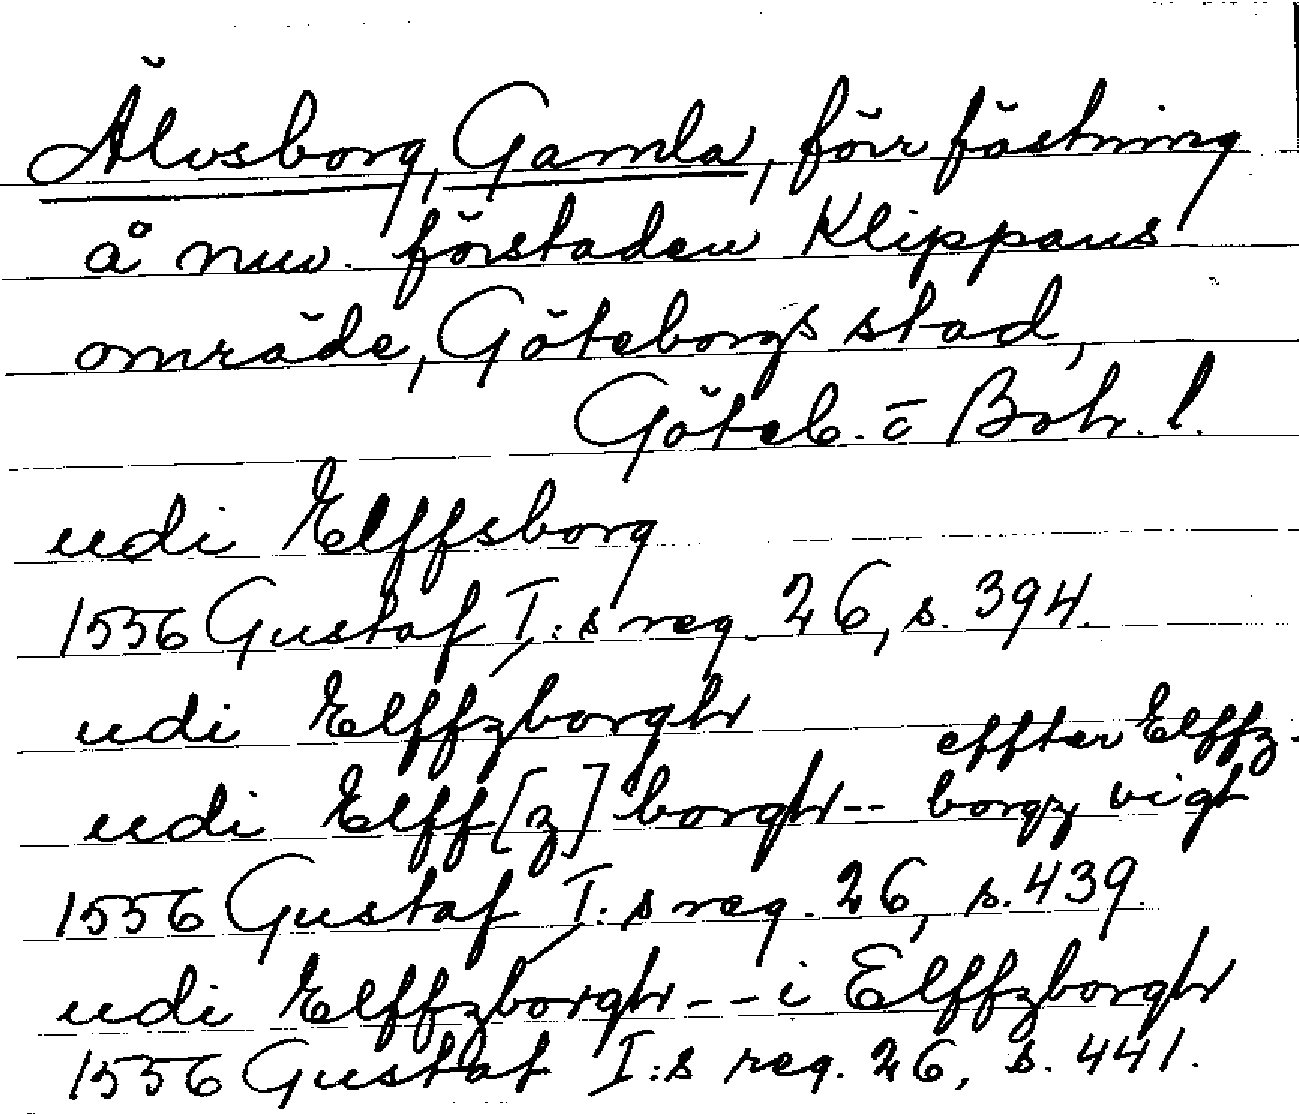 Älvsborg, Gamla, förr fästning
å nuv. förstaden Klippans
område, Göteborgs stad,
Göteb. o Boh. l.
udi Elffsborg
1556 Gustaf I:s reg. 26, s. 394.
udi Elffzborgh
effter Elffz-
udi Elff[z]borgh -- borgz vigt
1556 Gustaf I:s reg. 26, s. 439.
udi Elffzborgh -- i Elffzborgh
1556 Gustaf I:s reg. 26, s. 441.